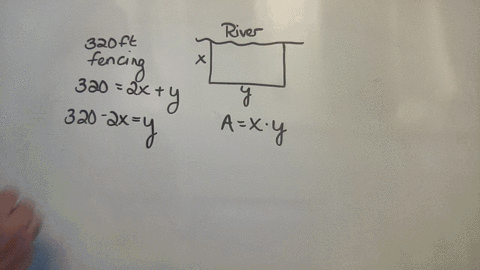 320ft
fencing
320 = 2x + y
320 - 2x = y
River
x
y
A = x · y